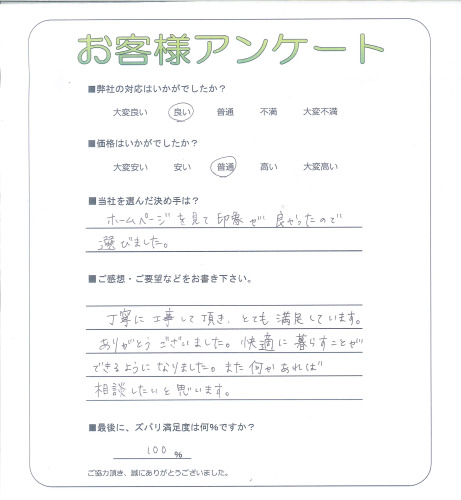 お客様アンケート
■弊社の対応はいかがでしたか?
大変良い 良い 普通 不満 大変不満
■価格はいかがでしたか?
大変安い 安い 普通 高い 大変高い
■当社を選んだ決め手は?
ホームページを見て印象が良かったので
選びました。
■ご感想・ご要望などをお書き下さい。
丁寧に工事して頂き、とても満足しています。
ありがとうございました。快適に暮らすことが
できるようになりました。また何かあれば
相談したいと思います。
■最後に、ズバリ満足度は何%ですか?
100 %
ご協力頂き、誠にありがとうございました。